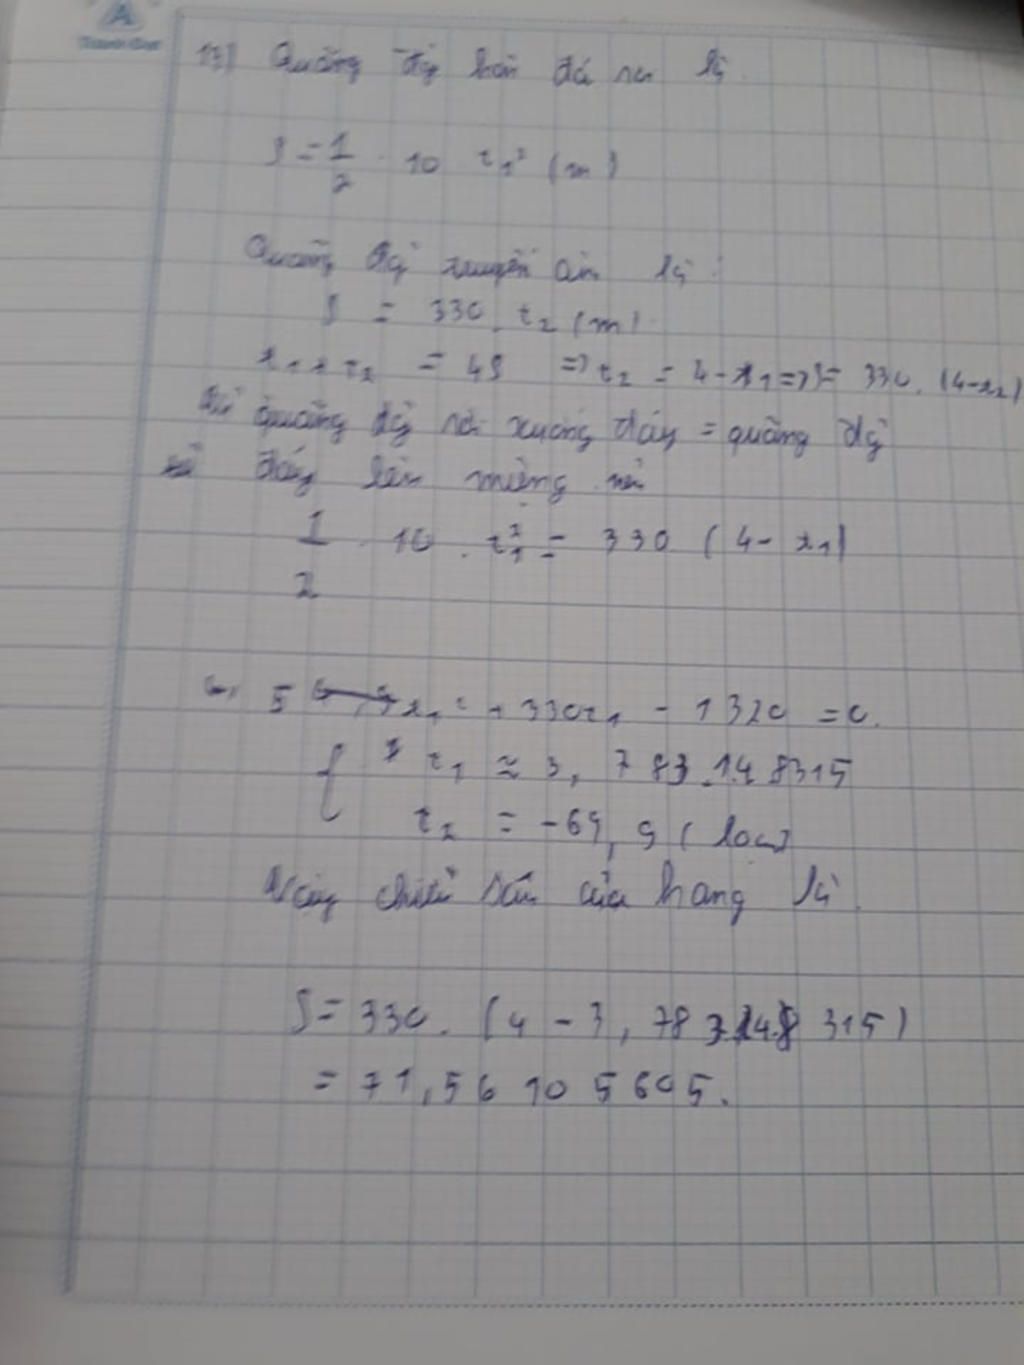 13) Quãng đg hòn đá rơi là
S = 1/2 . 10 t₁² (m)
Quãng đg truyền âm là :
S = 330 . t₂ (m)
t₁ + t₂ = 4s => t₂ = 4 - t₁ => S = 330 . (4 - t₂)
quãng đg rơi xuống đáy = quãng đg
đáy lên miệng nên
1/2 . 10 . t₁² = 330 (4 - t₁)
5 t₁² + 330t₁ - 1320 = 0.
{ t₁ ≈ 3,783148315
t₂ = -69,9 (loại)
Vậy chiều sâu của hang là
S = 330 . (4 - 3,783148315)
= 71,56105605.